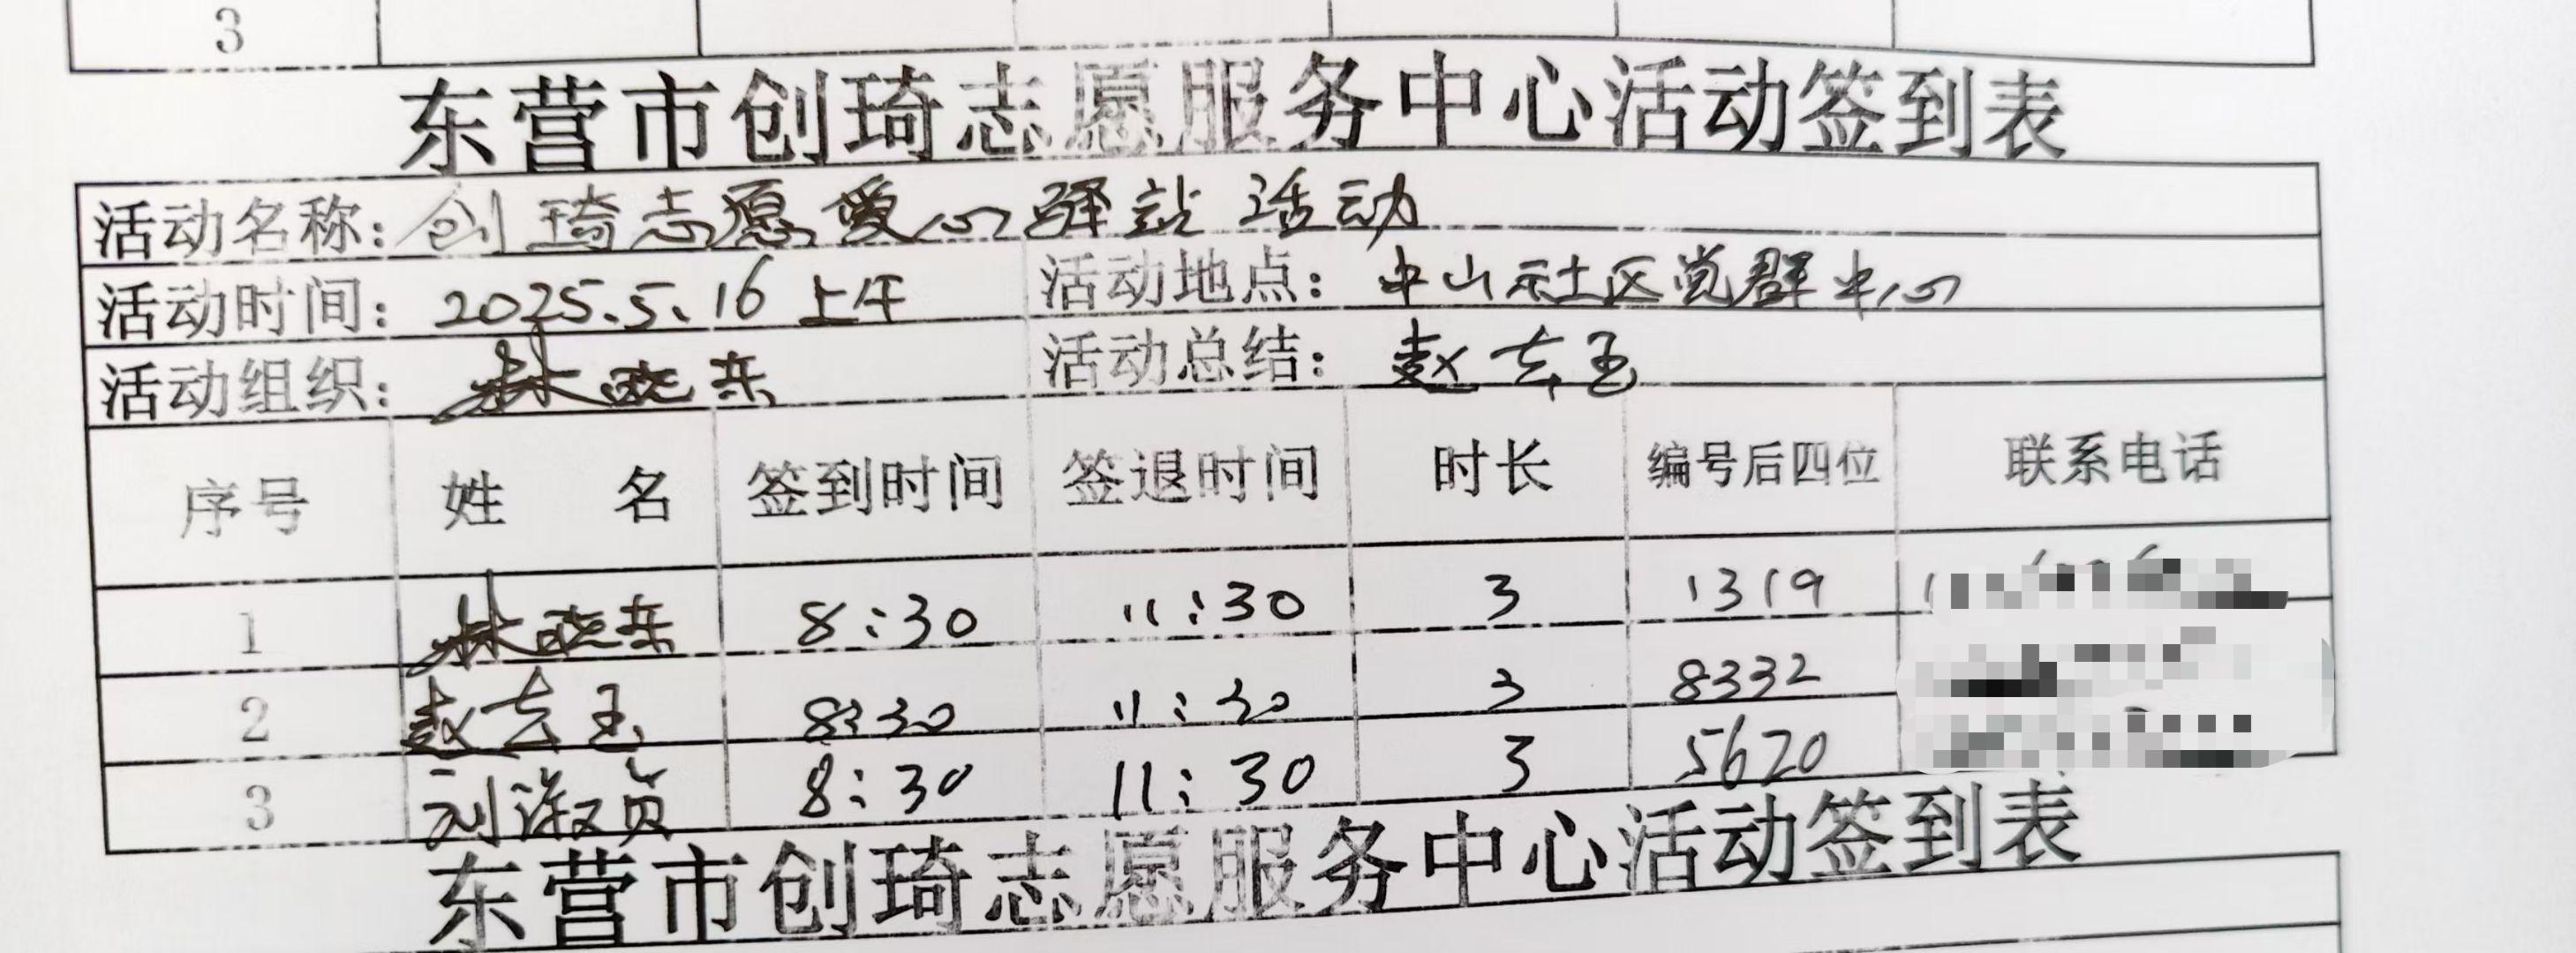 3
东营市创琦志愿服务中心活动签到表
活动名称：创琦志愿爱心驿站活动
活动时间：2025.5.16上午 活动地点：中山社区党群中心
活动组织：林晓东 活动总结：赵玄玉
序号 姓名 签到时间 签退时间 时长 编号后四位 联系电话
1 林晓东 8:30 11:30 3 1319
2 赵玄玉 8:30 11:30 3 8332
3 刘淑贞 8:30 11:30 3 5620
东营市创琦志愿服务中心活动签到表